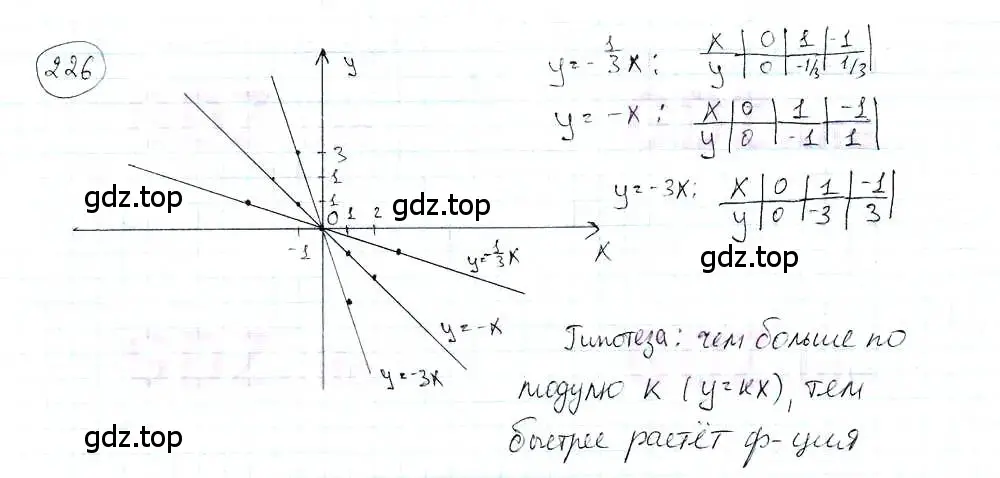 226
y
3
1
1
0
1
2
-1
x
y=-1/3x
y=-x
y=-3x
y=-1/3x: x | 0 | 1 | -1
y | 0 | -1/3 | 1/3
y=-x: x | 0 | 1 | -1
y | 0 | -1 | 1
y=-3x: x | 0 | 1 | -1
y | 0 | -3 | 3
Гипотеза: чем больше по
модулю k (y=kx), тем
быстрее растёт ф-ция
gdz.top
gdz.top
gdz.top
gdz.top
gdz.top